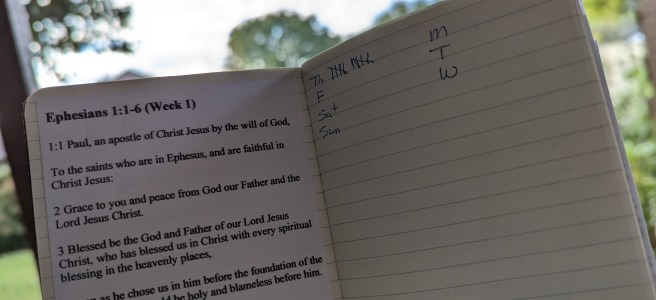 Ephesians 1:1-6 (Week 1)
1:1 Paul, an apostle of Christ Jesus by the will of God,
To the saints who are in Ephesus, and are faithful in
Christ Jesus:
2 Grace to you and peace from God our Father and the
Lord Jesus Christ.
3 Blessed be the God and Father of our Lord Jesus
Christ, who has blessed us in Christ with every spiritual
blessing in the heavenly places,
as he chose us in him before the foundation of the
be holy and blameless before him.
Th
F
Sat
Sun
M
T
W